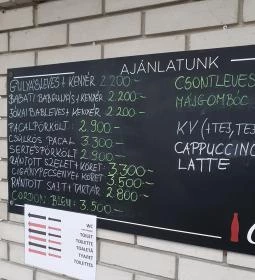 AJÁNLATUNK
GULYÁSLEVES + KENYÉR 2.200-
BABGULYÁS + KENYÉR 2.200-
JÓKAI BABLEVES + KENYÉR 2.200-
PACALPÖRKÖLT: 2.900-
CSÜLKÖS PACAL 3.300
SERTÉSPÖRKÖLT 2.900-
RÁNTOTT SZELET + KÖRET: 3.300-
CIGÁNYPECSENYE + KÖRET 3.500-
RÁNTOTT SAJT + TARTÁR 2.800-
CORDON BLEU: 3.500-
CSONTLEVES
MÁJGOMBÓC
KV (+TEJ, TEJ
CAPPUCCINO
LATTE
WC
TOILET
TOILETTE
TOALETA
ТУАЛЕТ
TOILETTES